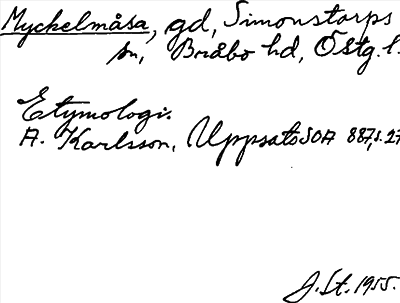 Myckelmåsa, gd, Simonstorps
sn, Bråbo hd, Östg. l.
Etymologi.
A. Karlsson, Uppsats SOA 887, s. 27
J. St. 1955.